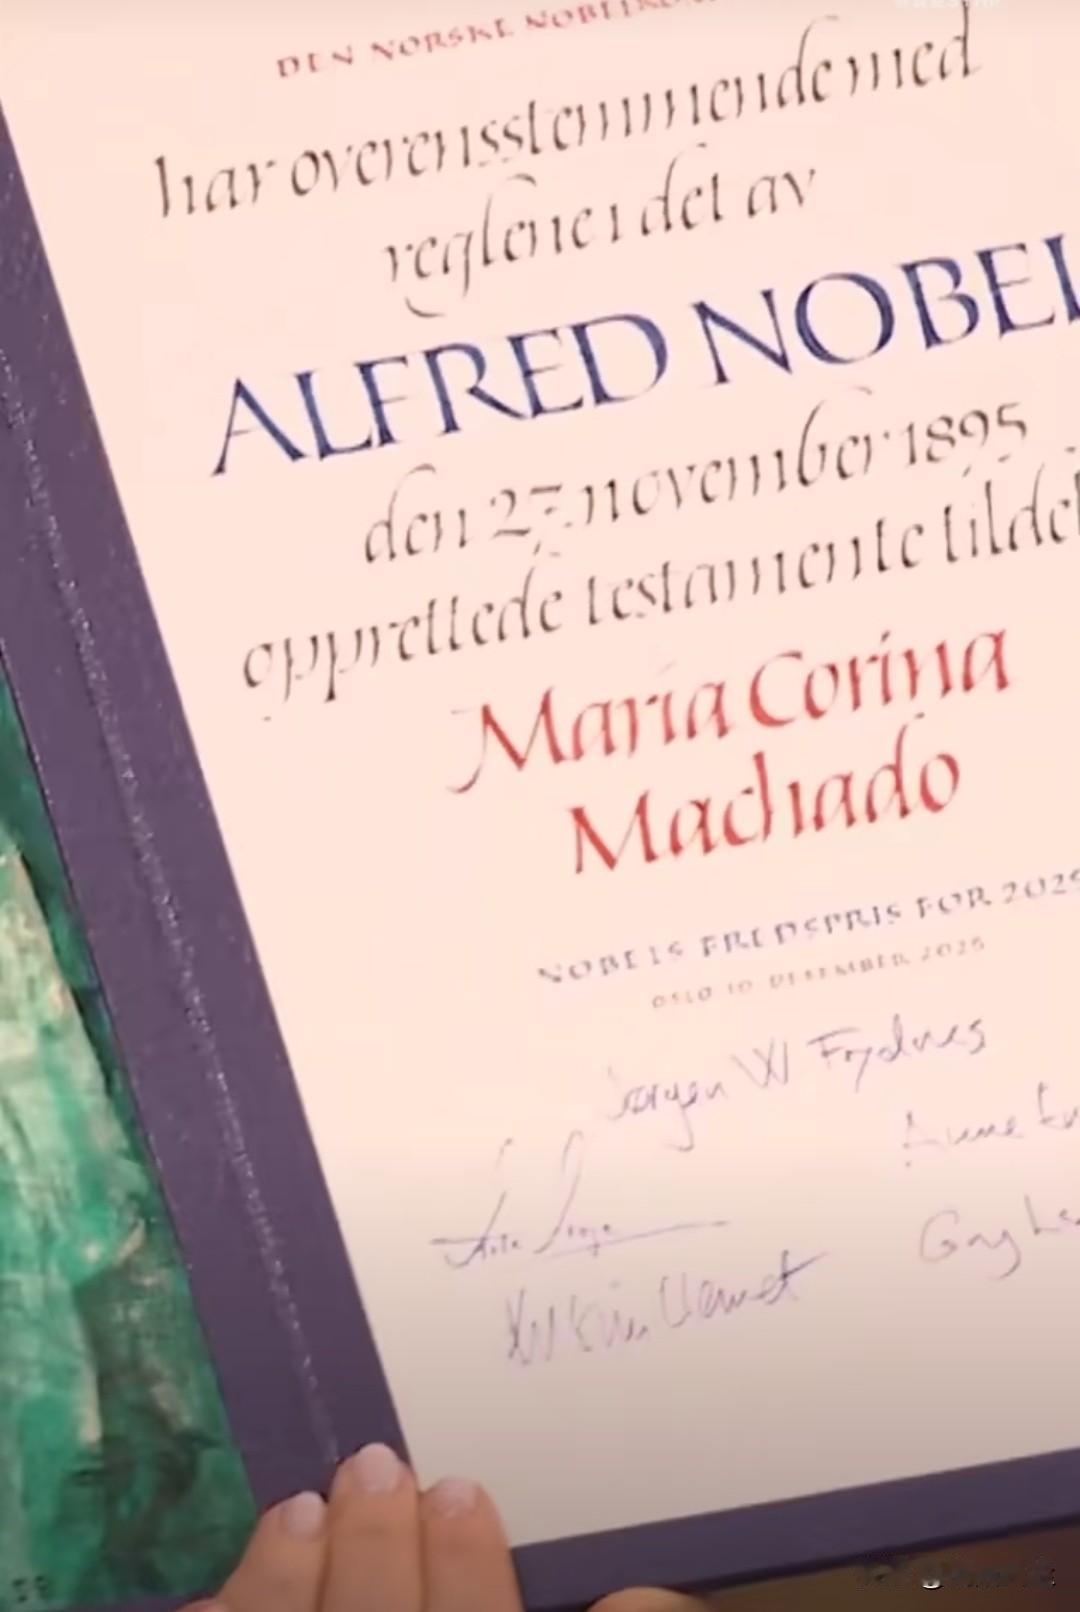 DEN NORSKE
har overensstemmende med
reglene i det av
ALFRED NOBEL
den 27. november 1895
opprettede testamente tildel
Maria Corina
Machado
NOBELS FREDSPRIS FOR 2025
OSLO 10 DESEMBER 2025
Jørgen W Frydnes
Anne
Gry La
Kristin Clemet